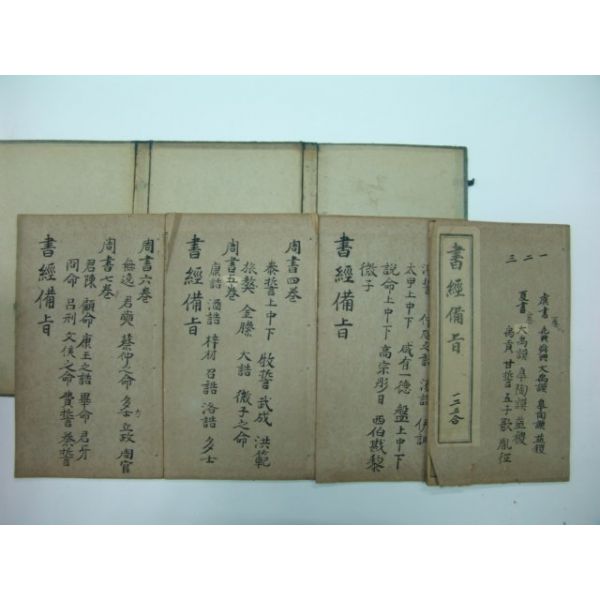 一 虞書 堯典 舜典 大禹謨 皐陶謨 益稷
二
三 夏書 大禹謨 皐陶謨 益稷
禹貢 甘誓 五子歌 胤征
書經備旨
一二三合
湯誓 仲虺之誥 湯誥 伊訓
太甲上中下 咸有一德 盤上中下
說命上中下 高宗肜日 西伯戡黎
微子
書經備旨
周書四卷
泰誓上中下 牧誓 武成 洪範
旅獒 金縢 大誥 微子之命
周書五卷
康誥 酒誥 梓材 召誥 洛誥 多士
書經備旨
周書六卷
無逸 君奭 蔡仲之命 多方 立政 周官
周書七卷
君陳 顧命 康王之誥 畢命 君牙
冏命 呂刑 文侯之命 費誓 秦誓
書經備旨